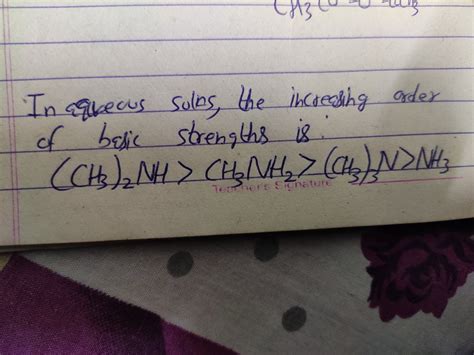 CH3
In aqueous solns, the increasing order
of basic strengths is.
(CH3)2NH > CH3NH2 > (CH3)3N > NH3
Teacher's Signature